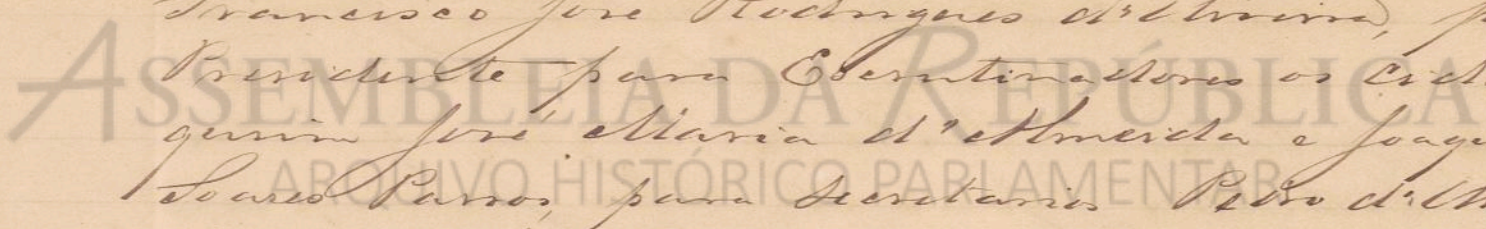 Francisco José Rodrigues d'Oliveira,
Presidente para Escrutinadores os Cid
quim José Maria d'Almeida e Joaqu
Soares Passos, para Secretarios Pedro d'
ASSEMBLEIA DA REPÚBLICA
ARQUIVO HISTÓRICO PARLAMENTAR